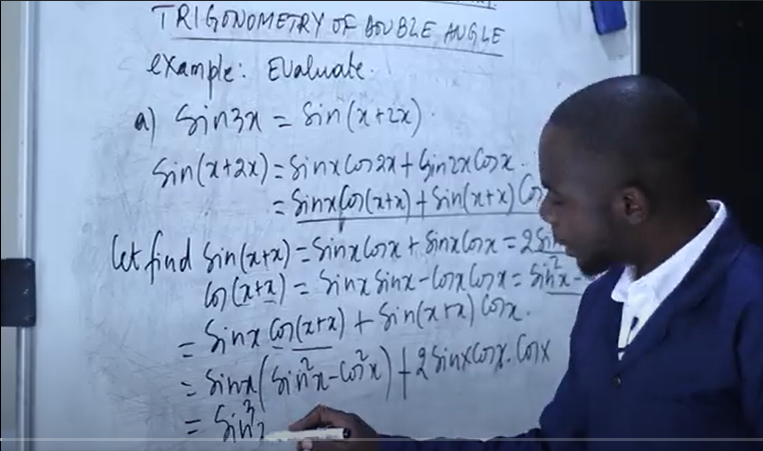 TRIGONOMETRY OF DOUBLE ANGLE
example: Evaluate.
a) Sin3x = Sin(x+2x).
Sin(x+2x) = Sinx Cos2x + Sin2x Cosx.
= Sinx Cos(x+x) + Sin(x+x) Co
Let find Sin(x+x) = Sinx Cosx + Sinx Cosx = 2Sin
Cos(x+x) = Sinx Sinx - Cosx Cosx = Sin²x -
= Sinx Cos(x+x) + Sin(x+x) Cosx.
= Sinx(Sin²x - Cos²x) + 2Sinx Cosx. Cosx
= Sin³